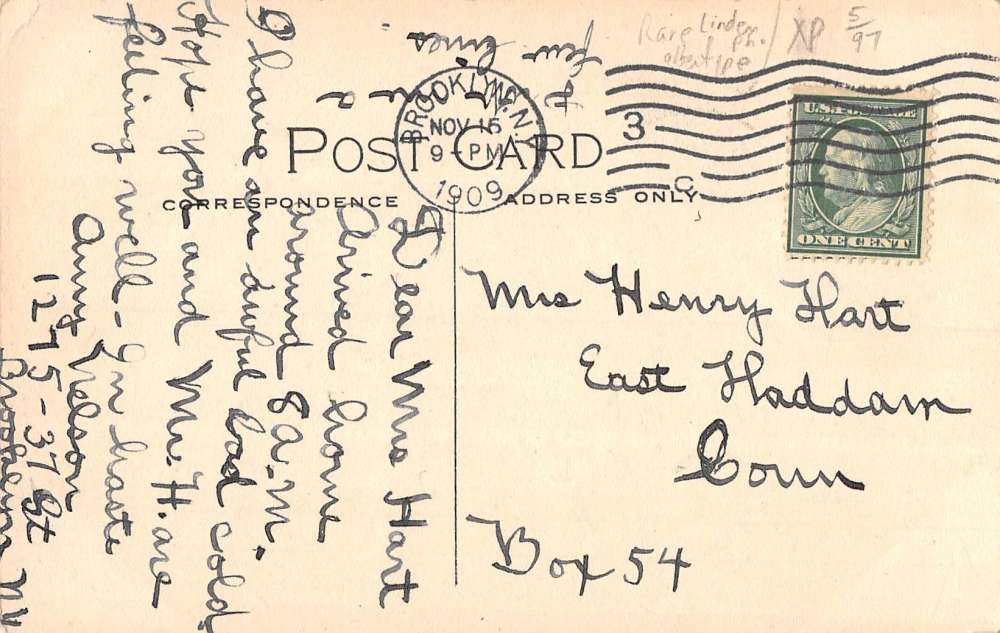 Rare Linden
Ph.
albertype
XP 5/97
BROOKLYN, N.Y.
NOV 15
9 - PM
1909
3
C
U.S. POSTAGE
ONE CENT
POST CARD
CORRESPONDENCE
ADDRESS ONLY
Mrs Henry Hart
East Haddam
Conn
Box 54
few lines
Dear Mrs Hart
Arived home
around 8 A.M.
I have an awful bad cold
Hope you and Mr. H. are
feeling well - In haste
Anny Nelson
1275 - 37 St
Brooklyn NY